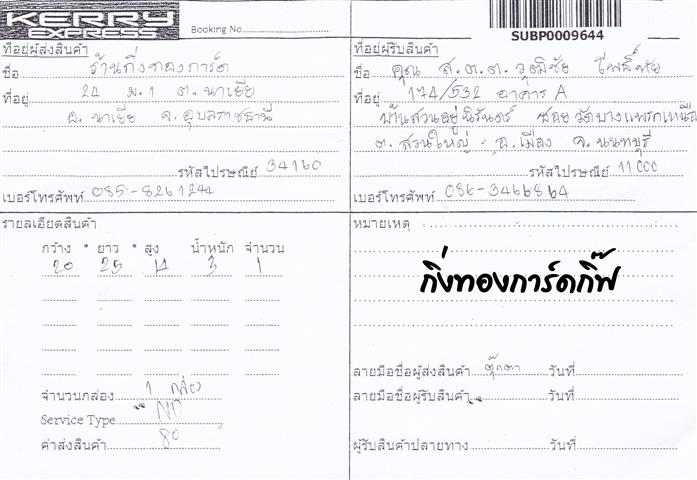 KERRY
EXPRESS
Booking No
SUBP0009644
ที่อยู่ผู้ส่งสินค้า
ชื่อ ร้านกิ่งทองการ์ด
ที่อยู่ 24 ม.1 ต.นาเยีย
อ.นาเยีย จ.อุบลราชธานี
รหัสไปรษณีย์ 34160
เบอร์โทรศัพท์ 085-8261244
ที่อยู่ผู้รับสินค้า
ชื่อ คุณ ส.ต.ต. วุฒิชัย โพธิ์ชัย
ที่อยู่ 174/532 อาคาร A
บ้านสวนอยู่นิรันดร์ ซอยวัดบางแพรกเหนือ
ต.สวนใหญ่ อ.เมือง จ.นนทบุรี
รหัสไปรษณีย์ 11000
เบอร์โทรศัพท์ 086-3466864
รายละเอียดสินค้า
กว้าง * ยาว * สูง น้ำหนัก จำนวน
20 25 14 3 1
จำนวนกล่อง 1 กล่อง
Service Type ND
ค่าส่งสินค้า 80
หมายเหตุ
กิ่งทองการ์ดกิ๊ฟ
ลายมือชื่อผู้ส่งสินค้า ตุ๊กตา วันที่
ลายมือชื่อผู้รับสินค้า วันที่
ผู้รับสินค้าปลายทาง วันที่